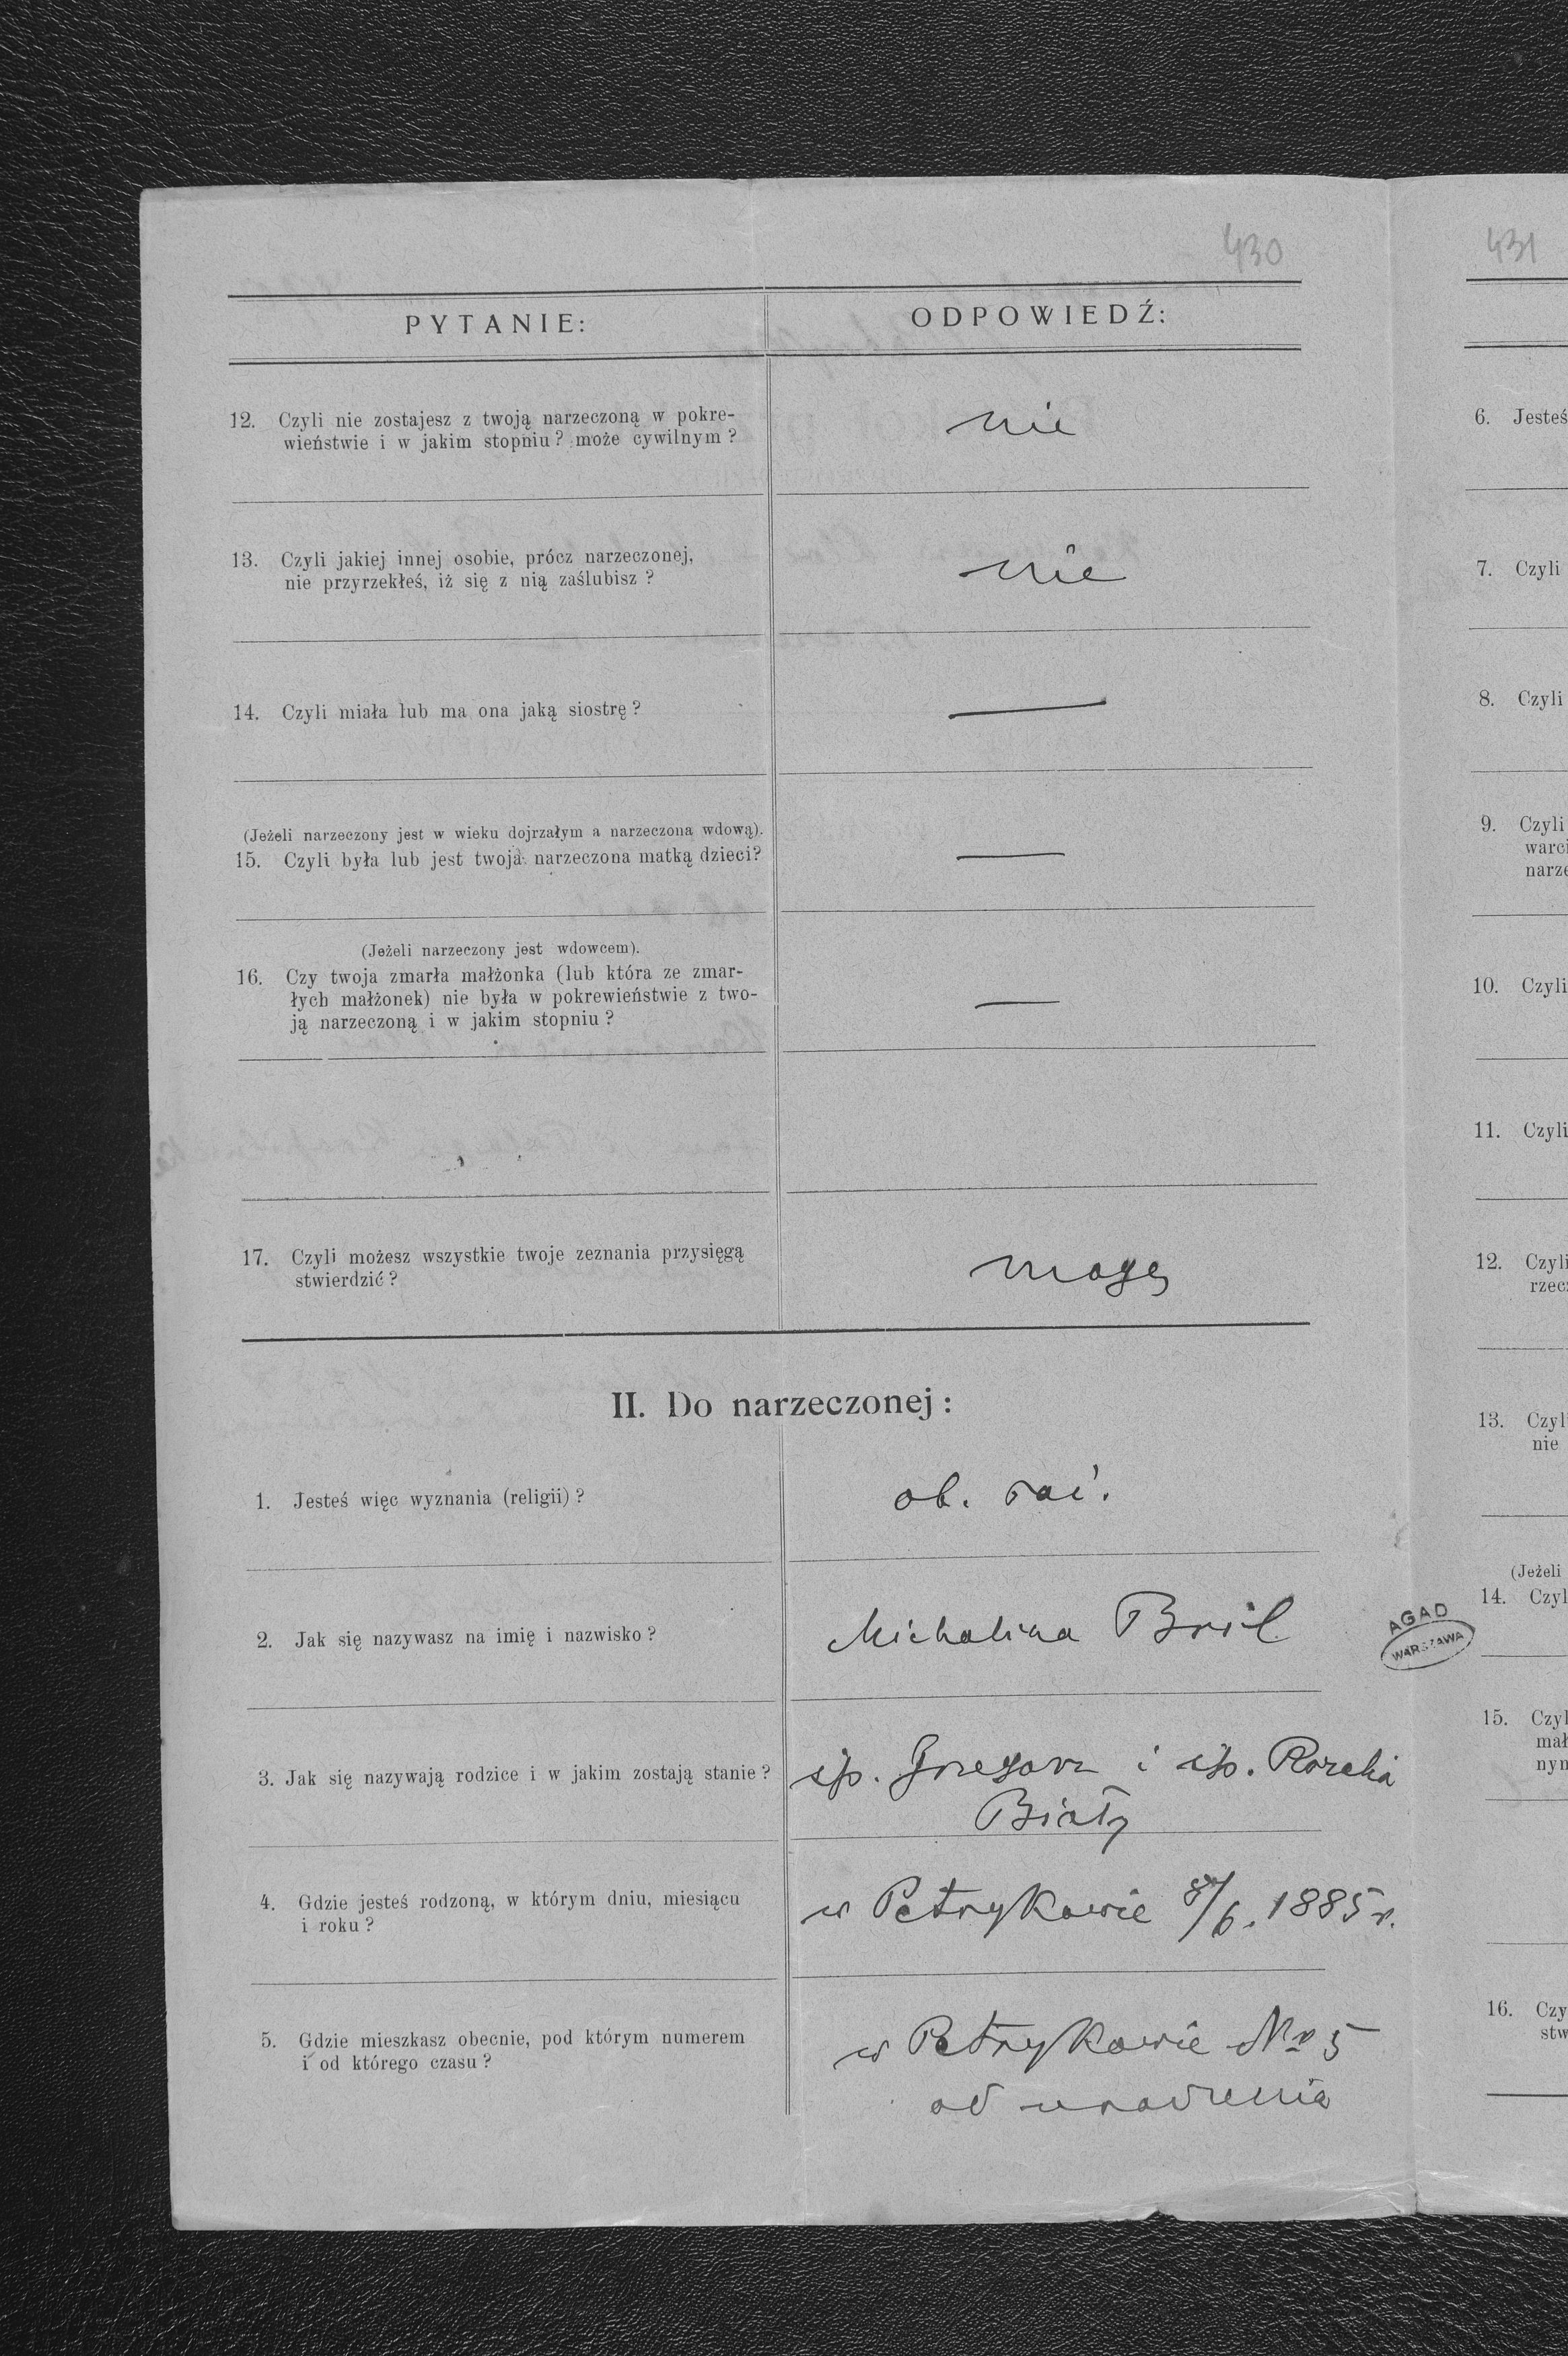 430
431
PYTANIE:
ODPOWIEDŹ:
12. Czyli nie zostajesz z twoją narzeczoną w pokre-
wieństwie i w jakim stopniu? może cywilnym?
nie
13. Czyli jakiej innej osobie, prócz narzeczonej,
nie przyrzekłeś, iż się z nią zaślubisz?
nie
14. Czyli miała lub ma ona jaką siostrę?
—
(Jeżeli narzeczony jest w wieku dojrzałym a narzeczona wdową).
15. Czyli była lub jest twoja narzeczona matką dzieci?
—
(Jeżeli narzeczony jest wdowcem).
16. Czy twoja zmarła małżonka (lub która ze zmar-
łych małżonek) nie była w pokrewieństwie z two-
ją narzeczoną i w jakim stopniu?
—
17. Czyli możesz wszystkie twoje zeznania przysięgą
stwierdzić?
mogę
II. Do narzeczonej:
1. Jesteś więc wyznania (religii)?
ob. łać.
2. Jak się nazywasz na imię i nazwisko?
Michalina Bril
3. Jak się nazywają rodzice i w jakim zostają stanie?
śp. Grzegorz i śp. Rozalia
Biały
4. Gdzie jesteś rodzoną, w którym dniu, miesiącu
i roku?
w Petrykowie /6. 1885 r.
5. Gdzie mieszkasz obecnie, pod którym numerem
i od którego czasu?
w Petrykowie Nr 5
od urodzenia
6. Jesteś
7. Czyli
8. Czyli
9. Czyli
warci
narze
10. Czyli
11. Czyli
12. Czyli
rzec
13. Czyl
nie
(Jeżeli
14. Czyl
AGAD
WARSZAWA
15. Czyl
mał
nyn
16. Czy
stw